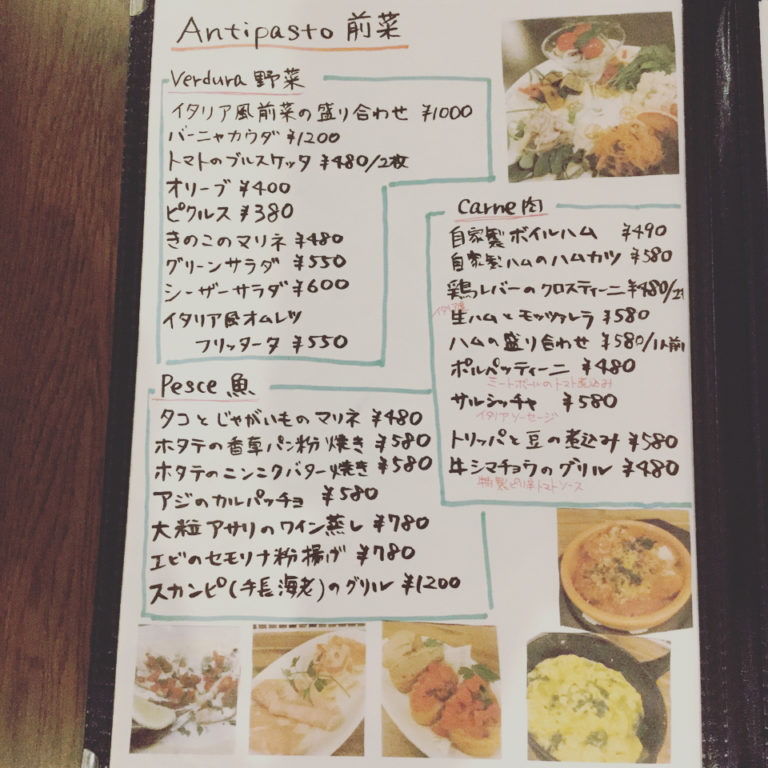 Antipasto 前菜
Verdura 野菜
イタリア風前菜の盛り合わせ ¥1000
バーニャカウダ ¥1200
トマトのブルスケッタ ¥480/2枚
オリーブ ¥400
ピクルス ¥380
きのこのマリネ ¥480
グリーンサラダ ¥550
シーザーサラダ ¥600
イタリア風オムレツ
フリッタータ ¥550
Pesce 魚
タコとじゃがいものマリネ ¥480
ホタテの香草パン粉焼き ¥580
ホタテのニンニクバター焼き ¥580
アジのカルパッチョ ¥580
大粒アサリのワイン蒸し ¥780
エビのセモリナ粉揚げ ¥780
スカンピ(手長海老)のグリル ¥1200
Carne 肉
自家製ボイルハム ¥490
自家製ハムのハムカツ ¥580
鶏レバーのクロスティーニ ¥480/2
イタリア産
生ハムとモッツァレラ ¥580
ハムの盛り合わせ ¥580/1人前
ポルペッティーニ ¥480
ミートボールのトマト煮込み
サルシッチャ ¥580
イタリアソーセージ
トリッパと豆の煮込み ¥580
牛シマチョウのグリル ¥480
特製ピリ辛トマトソース